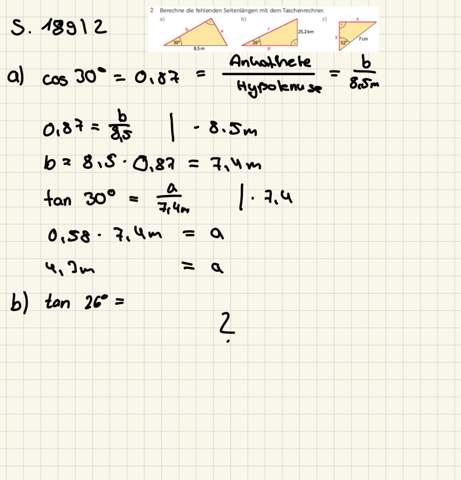 S. 189/2
2 Berechne die fehlenden Seitenlängen mit dem Taschenrechner.
a) b) c)
30° 8,5 m
26° 25,2 km
52° 7 cm
a) cos 30° = 0,87 = Ankathete / Hypotenuse = b / 8,5m
0,87 = b / 8,5 | · 8.5m
b = 8,5 · 0,87 = 7,4m
tan 30° = a / 7,4m | · 7,4
0,58 · 7,4m = a
4,3m = a
b) tan 26° =
?